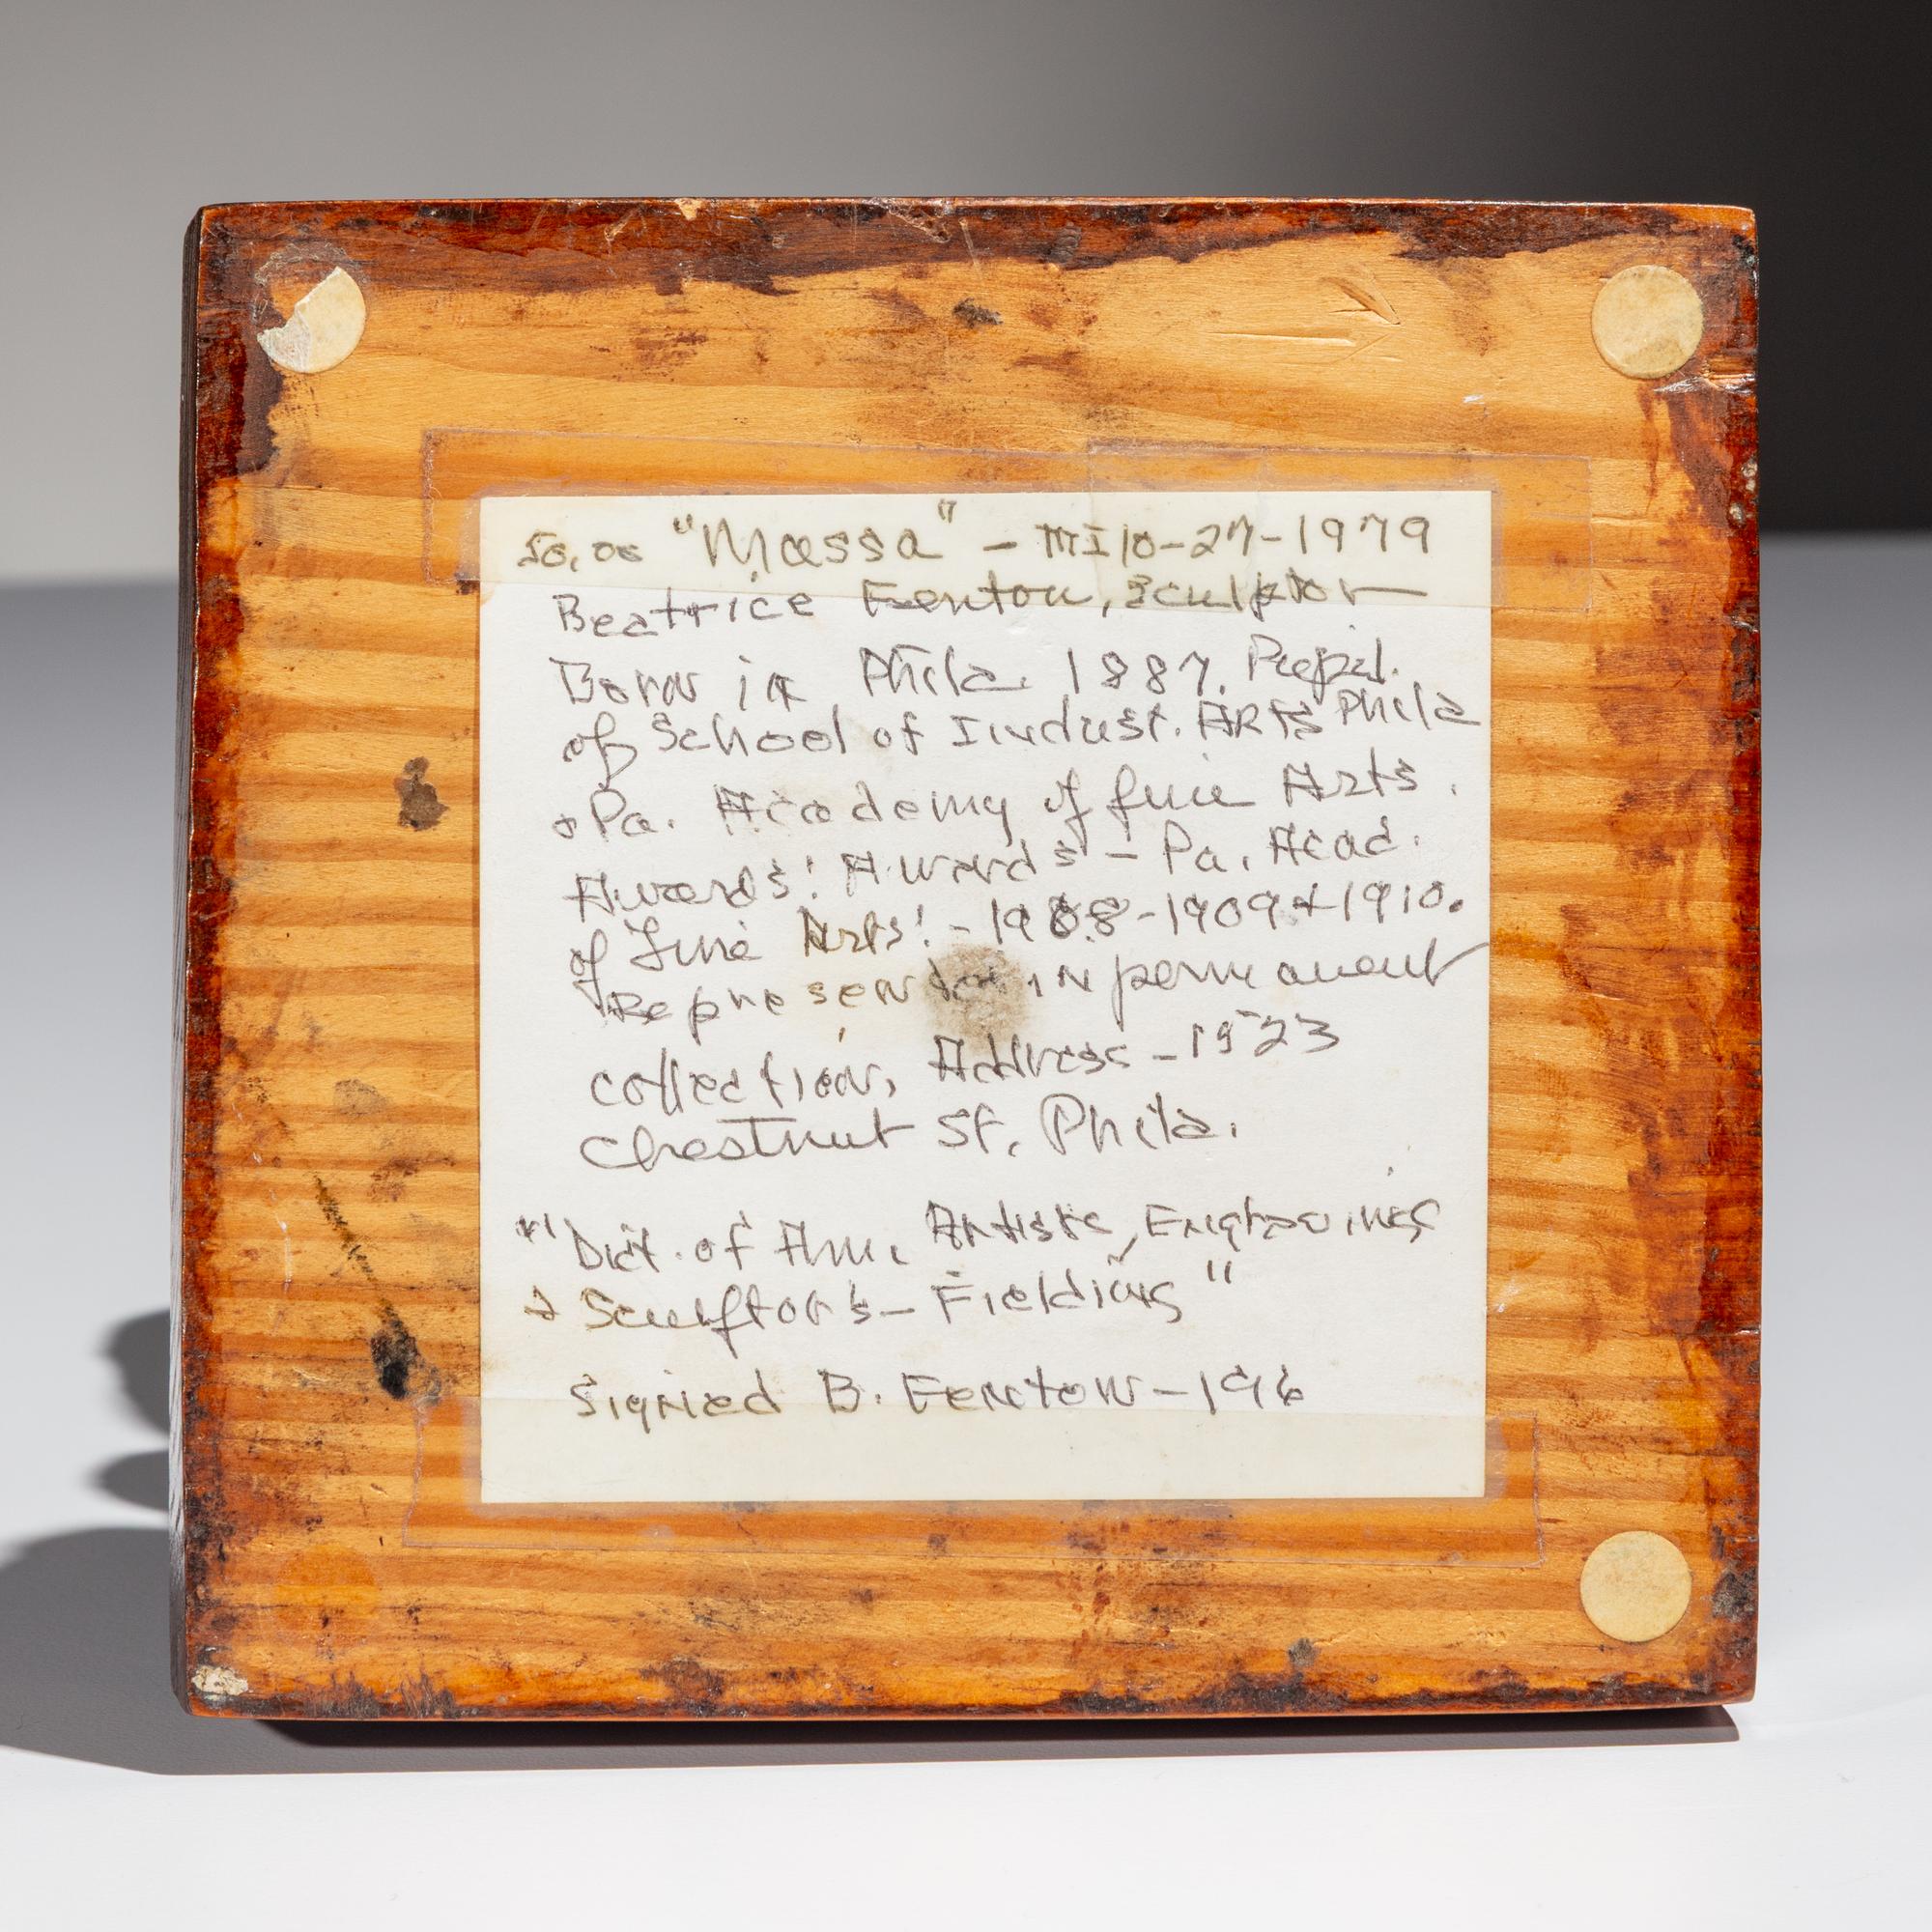 50,00 "Massa" - MI 10-27-1979
Beatrice Fenton, Sculptor
Born in Phila. 1887. Pupil.
of School of Indust. Arts Phila
+ Pa. Academy of fine Arts.
Awards: Awards - Pa. Acad.
of Fine Arts: - 1908-1909 + 1910.
Represented in permanent
collection, Address - 1523
Chestnut St, Phila.
"Dict. of Am. Artists, Engravings
+ Sculptor's - Fielding"
Signed B. Fenton - 196